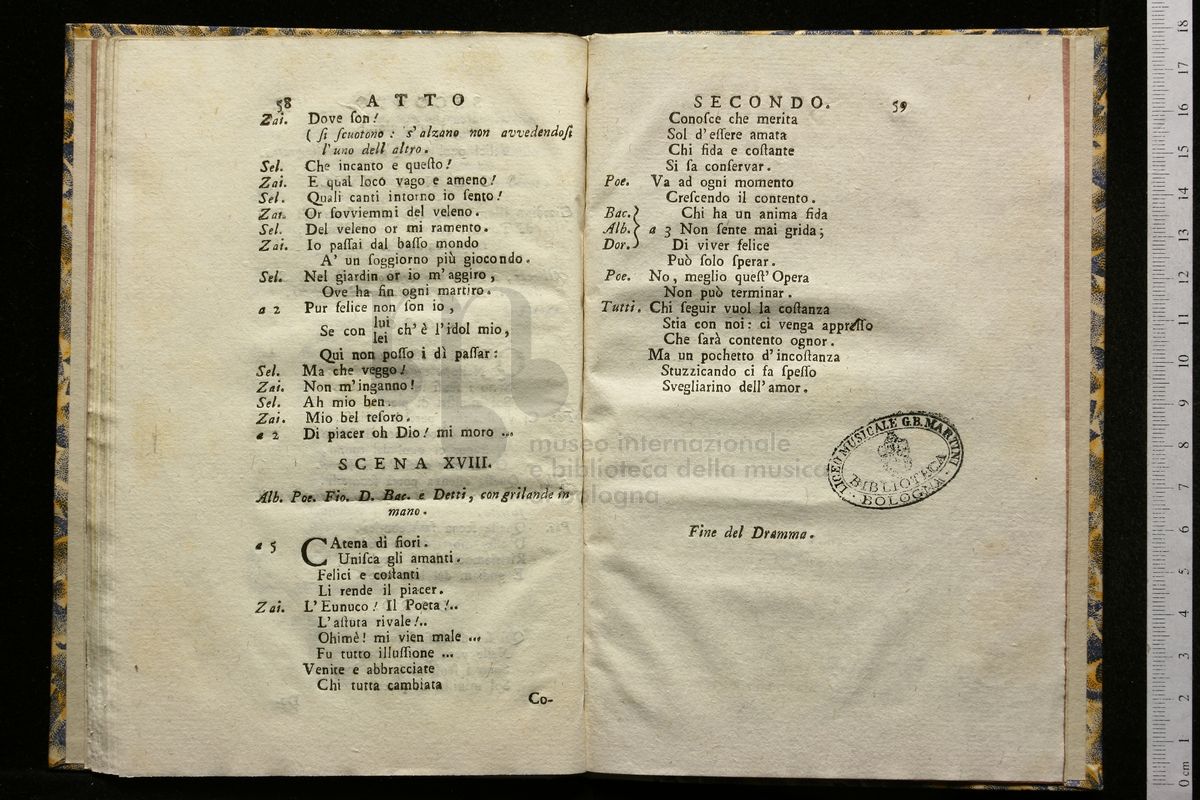 58 ATTO
Zai. Dove ſon!
( ſi ſcuotono: s'alzano non avvedendoſi
l'uno dell altro.
Sel. Che incanto e queſto!
Zai. E qual loco vago e ameno!
Sel. Quali canti intorno io ſento!
Zai. Or ſovviemmi del veleno.
Sel. Del veleno or mi ramento.
Zai. Io paſſai dal baſſo mondo
A' un ſoggiorno più giocondo.
Sel. Nel giardin or io m'aggiro,
Ove ha fin ogni martiro.
a 2 Pur felice non ſon io,
Se con lui ch'è l'idol mio,
lei
Qui non poſſo i dì paſſar:
Sel. Ma che veggo!
Zai. Non m'inganno!
Sel. Ah mio ben.
Zai. Mio bel teſoro.
a 2 Di piacer oh Dio! mi moro ...
SCENA XVIII.
Alb. Poe. Fio. D. Bac. e Detti, con grilande in
mano.
a 5 CAtena di fiori.
Uniſca gli amanti.
Felici e coſtanti
Li rende il piacer.
Zai. L'Eunuco! Il Poeta!..
L'aſtuta rivale!..
Ohimè! mi vien male ...
Fu tutto illuſſione ...
Venite e abbracciate
Chi tutta cambiata
Co-
SECONDO. 59
Conoſce che merita
Sol d'eſſere amata
Chi fida e coſtante
Si ſa conſervar.
Poe. Va ad ogni momento
Creſcendo il contento.
Bac. Chi ha un anima fida
Alb. a 3 Non ſente mai grida;
Dor. Di viver felice
Può ſolo ſperar.
Poe. No, meglio queſt'Opera
Non può terminar.
Tutti. Chi ſeguir vuol la coſtanza
Stia con noi: ci venga appreſſo
Che ſarà contento ognor.
Ma un pochetto d'incoſtanza
Stuzzicando ci fa ſpeſſo
Svegliarino dell'amor.
LICEO MUSICALE G.B. MARTINI
BIBLIOTECA
BOLOGNA
Fine del Dramma.
museo internazionale
e biblioteca della musica
bologna
0 cm 1 2 3 4 5 6 7 8 9 10 11 12 13 14 15 16 17 18